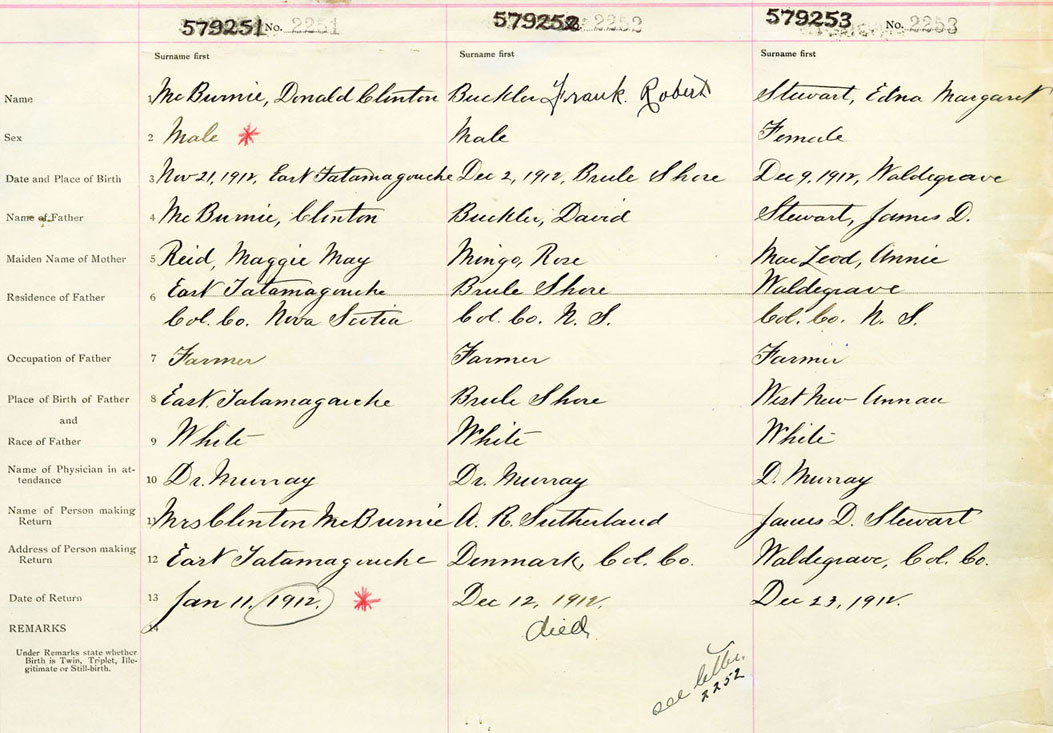 579251 No. 2251 579252 2252 579253 No. 2253
Surname first Surname first Surname first
Name 1 McBurnie, Donald Clinton Buckler Frank. Robert Stewart, Edna Margaret
Sex 2 Male * Male Female
Date and Place of Birth 3 Nov 21, 1912, East Tatamagouche Dec 2, 1912, Brule Shore Dec 9, 1912, Waldegrave
Name of Father 4 McBurnie, Clinton Buckler, David Stewart, James D.
Maiden Name of Mother 5 Reid, Maggie May Mingo, Rose MacLeod, Annie
Residence of Father 6 East Tatamagouche Brule Shore Waldegrave
Col. Co. Nova Scotia Col. Co. N. S. Col. Co. N. S.
Occupation of Father 7 Farmer Farmer Farmer
Place of Birth of Father 8 East Tatamagouche Brule Shore West New Annan
and
Race of Father 9 White White White
Name of Physician in at-
tendance 10 Dr. Murray Dr. Murray D. Murray
Name of Person making
Return 11 Mrs Clinton McBurnie A. R. Sutherland James D. Stewart
Address of Person making
Return 12 East Tatamagouche Denmark, Col. Co. Waldegrave, Col. Co.
Date of Return 13 Jan 11, 1912. * Dec 12, 1912. Dec 23, 1912.
REMARKS 14 died
Under Remarks state whether
Birth is Twin, Triplet, Ille-
gitimate or Still-birth.
see letter.
2252